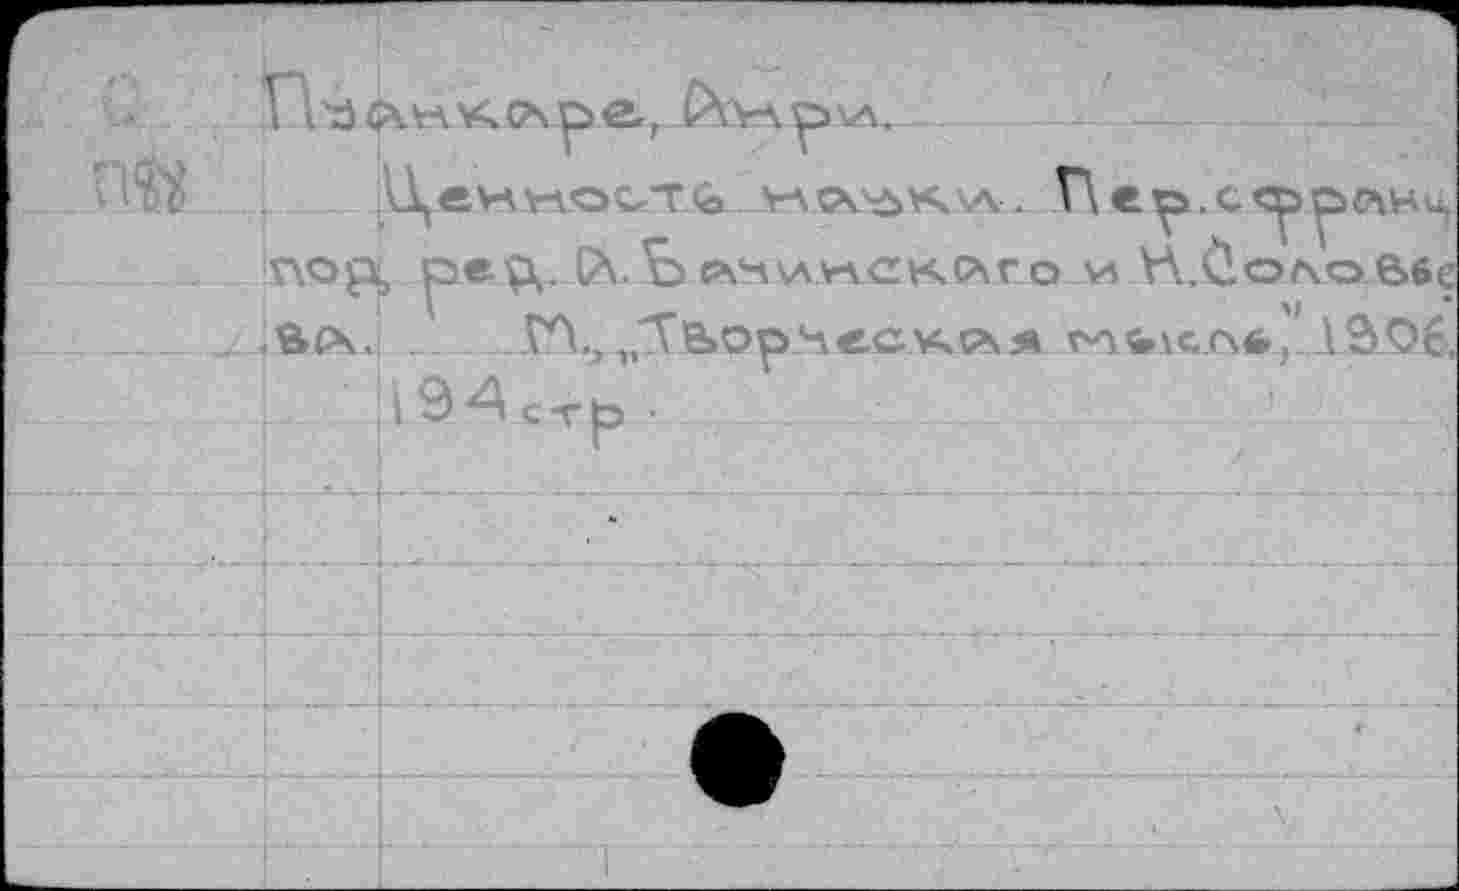 Пуанкаре, Анри.
Ценность науки. Пер. с франц
под ред. А. Бачинскаго и Н. Соловье
ва. М., „Творческая мысль", 1906.
194 стр.